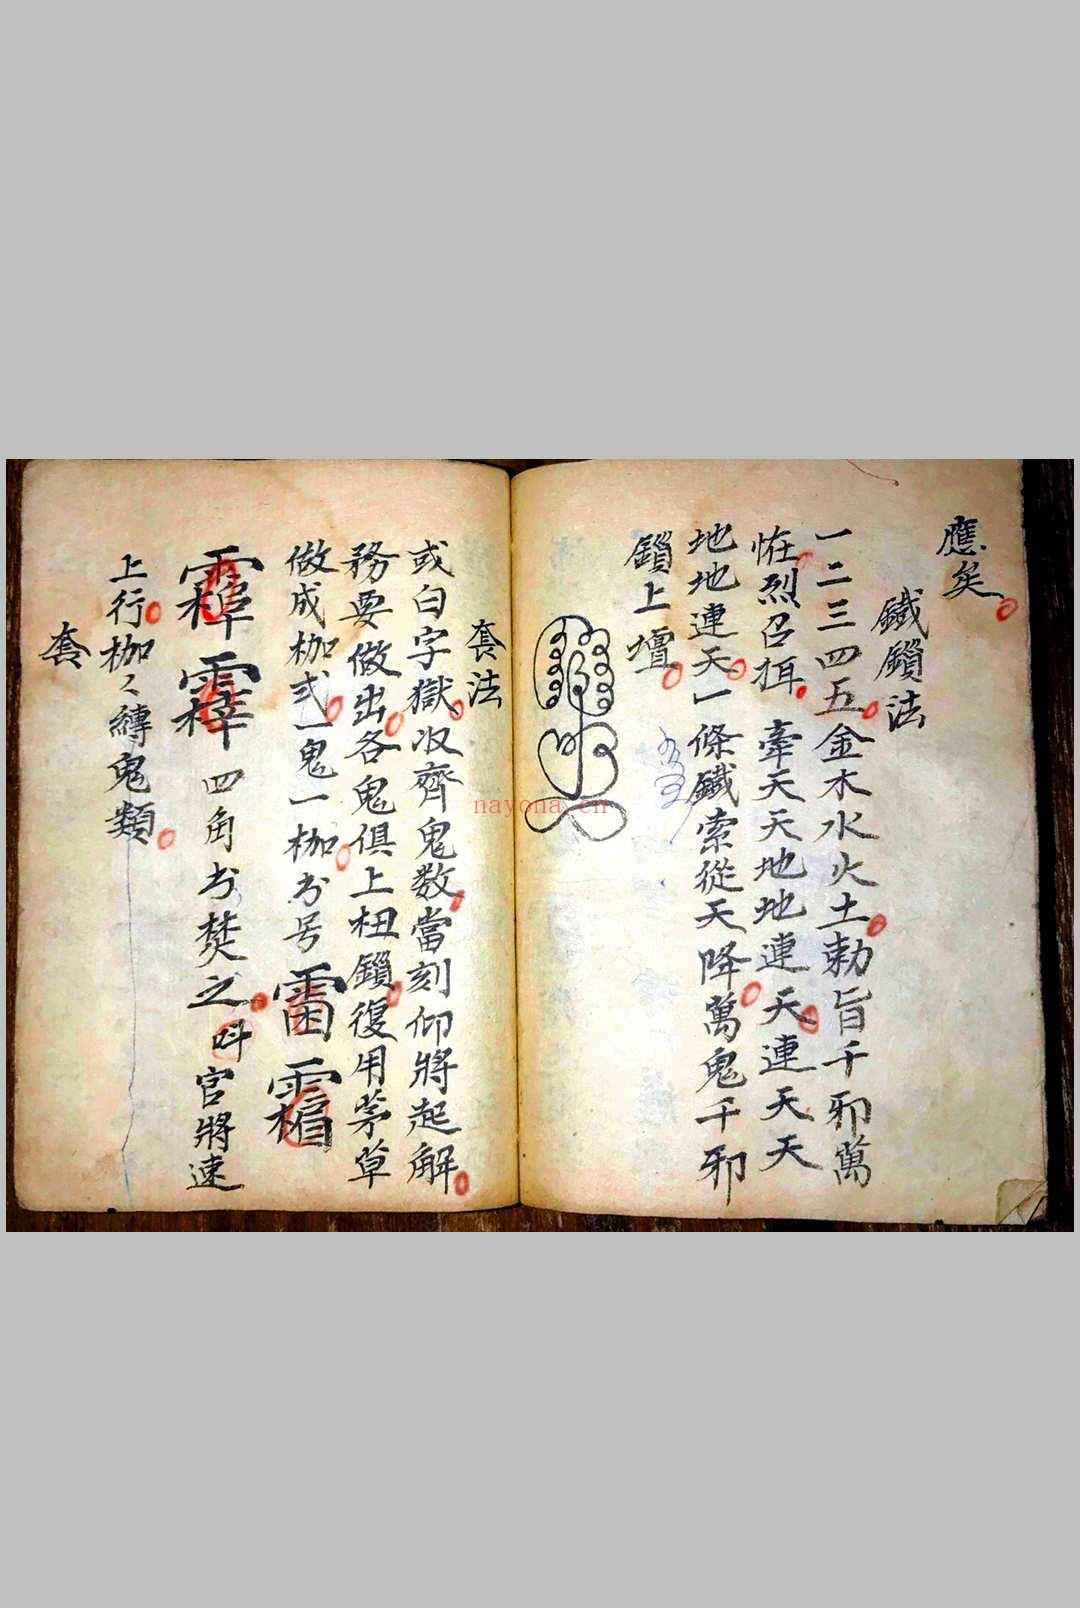 應矣
鐵鎖法
一二三四五金木水火土勅旨千邪萬
恠烈召 牽天天地地連天連天天
地地連天一條鐵索從天降萬鬼千邪
鎖上壇
套法
或白字獄収齊鬼数當刻仰將起解
務要做出各鬼俱上杻鎖復用茅草
做成枷弍一鬼一枷书号
四角书焚之 官將速
上行枷々縳鬼類
套
nayona.cn